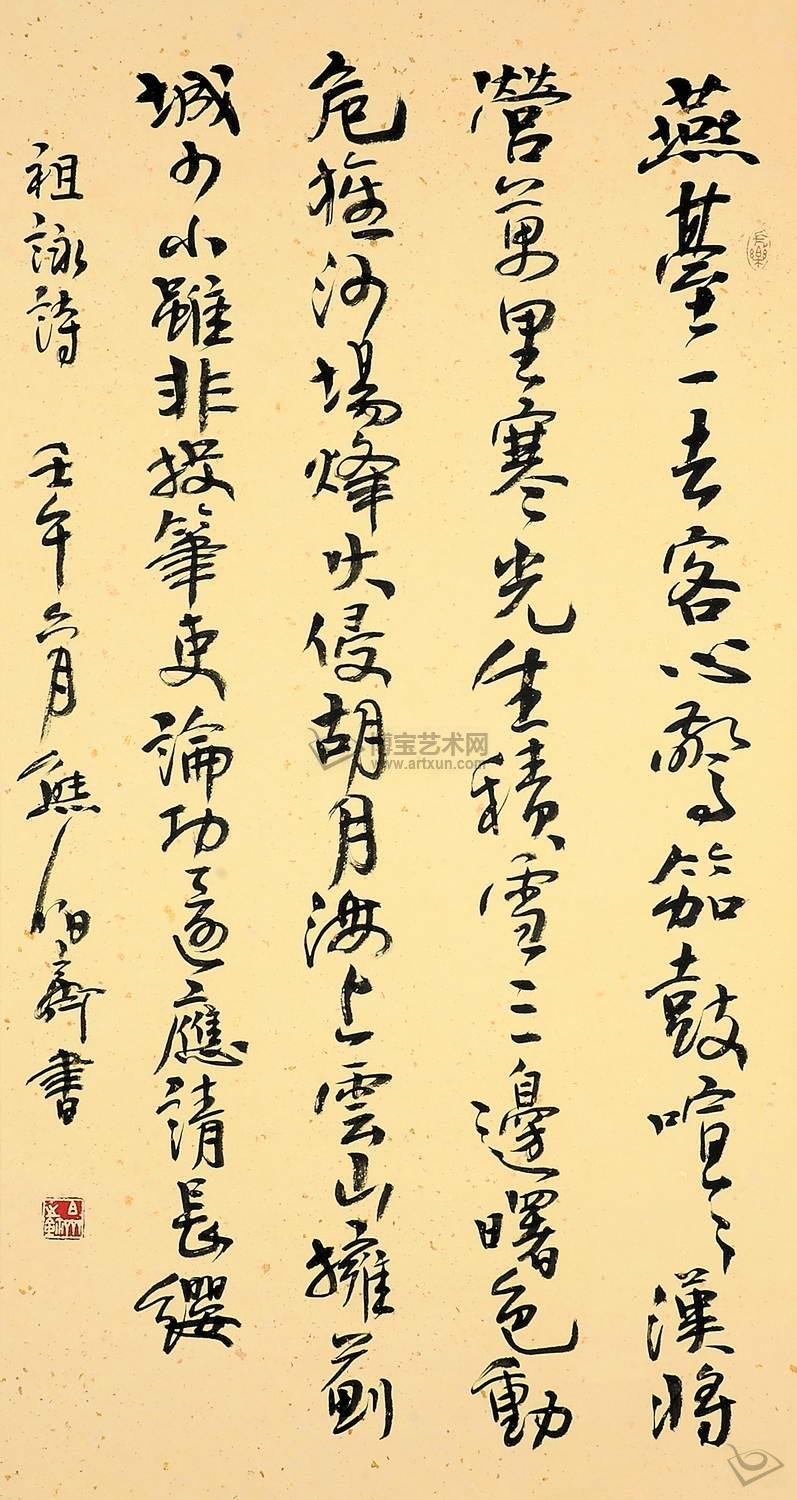 燕臺一去客心驚笳鼓喧々漢將
營萬里寒光生積雪三邊曙色動
危旌沙場烽火侵胡月海上雲山擁薊
城少小雖非投筆吏論功還應請長纓
祖詠詩 壬午六月熊伯齊書
長樂
博宝艺术网
www.artxun.com